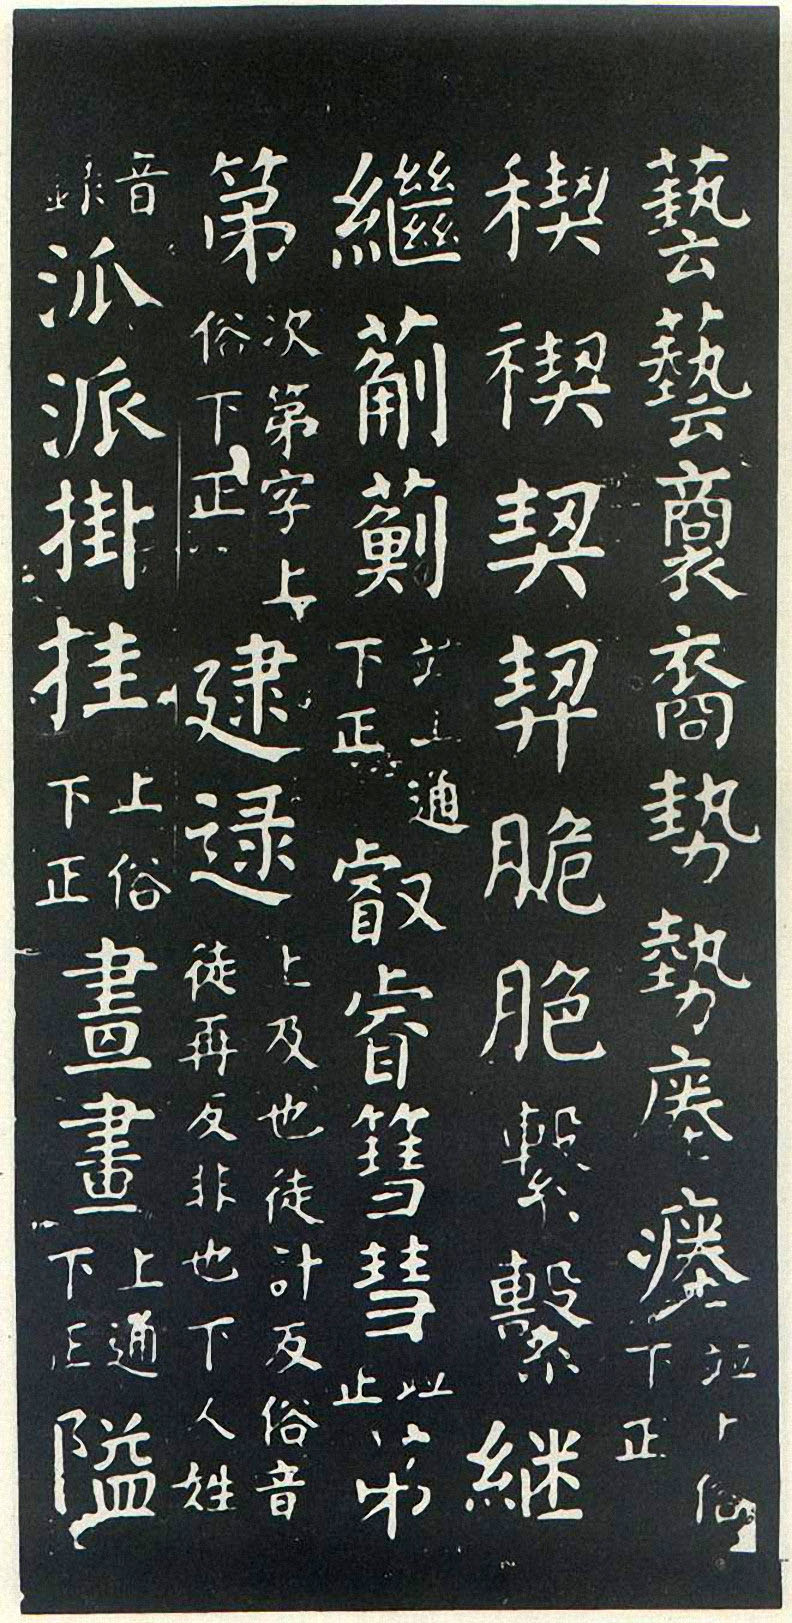 藝藝裔裔勢勢瘞瘞並上俗下正
稧禊契契脆脃繫繫継
繼葪薊並上通下正叡睿篲彗並正苐
第次第字上俗下正逮逯上及也徒計反俗音徒再反非也下人姓
音録泒派掛挂上俗下正畫畫上通下正隘